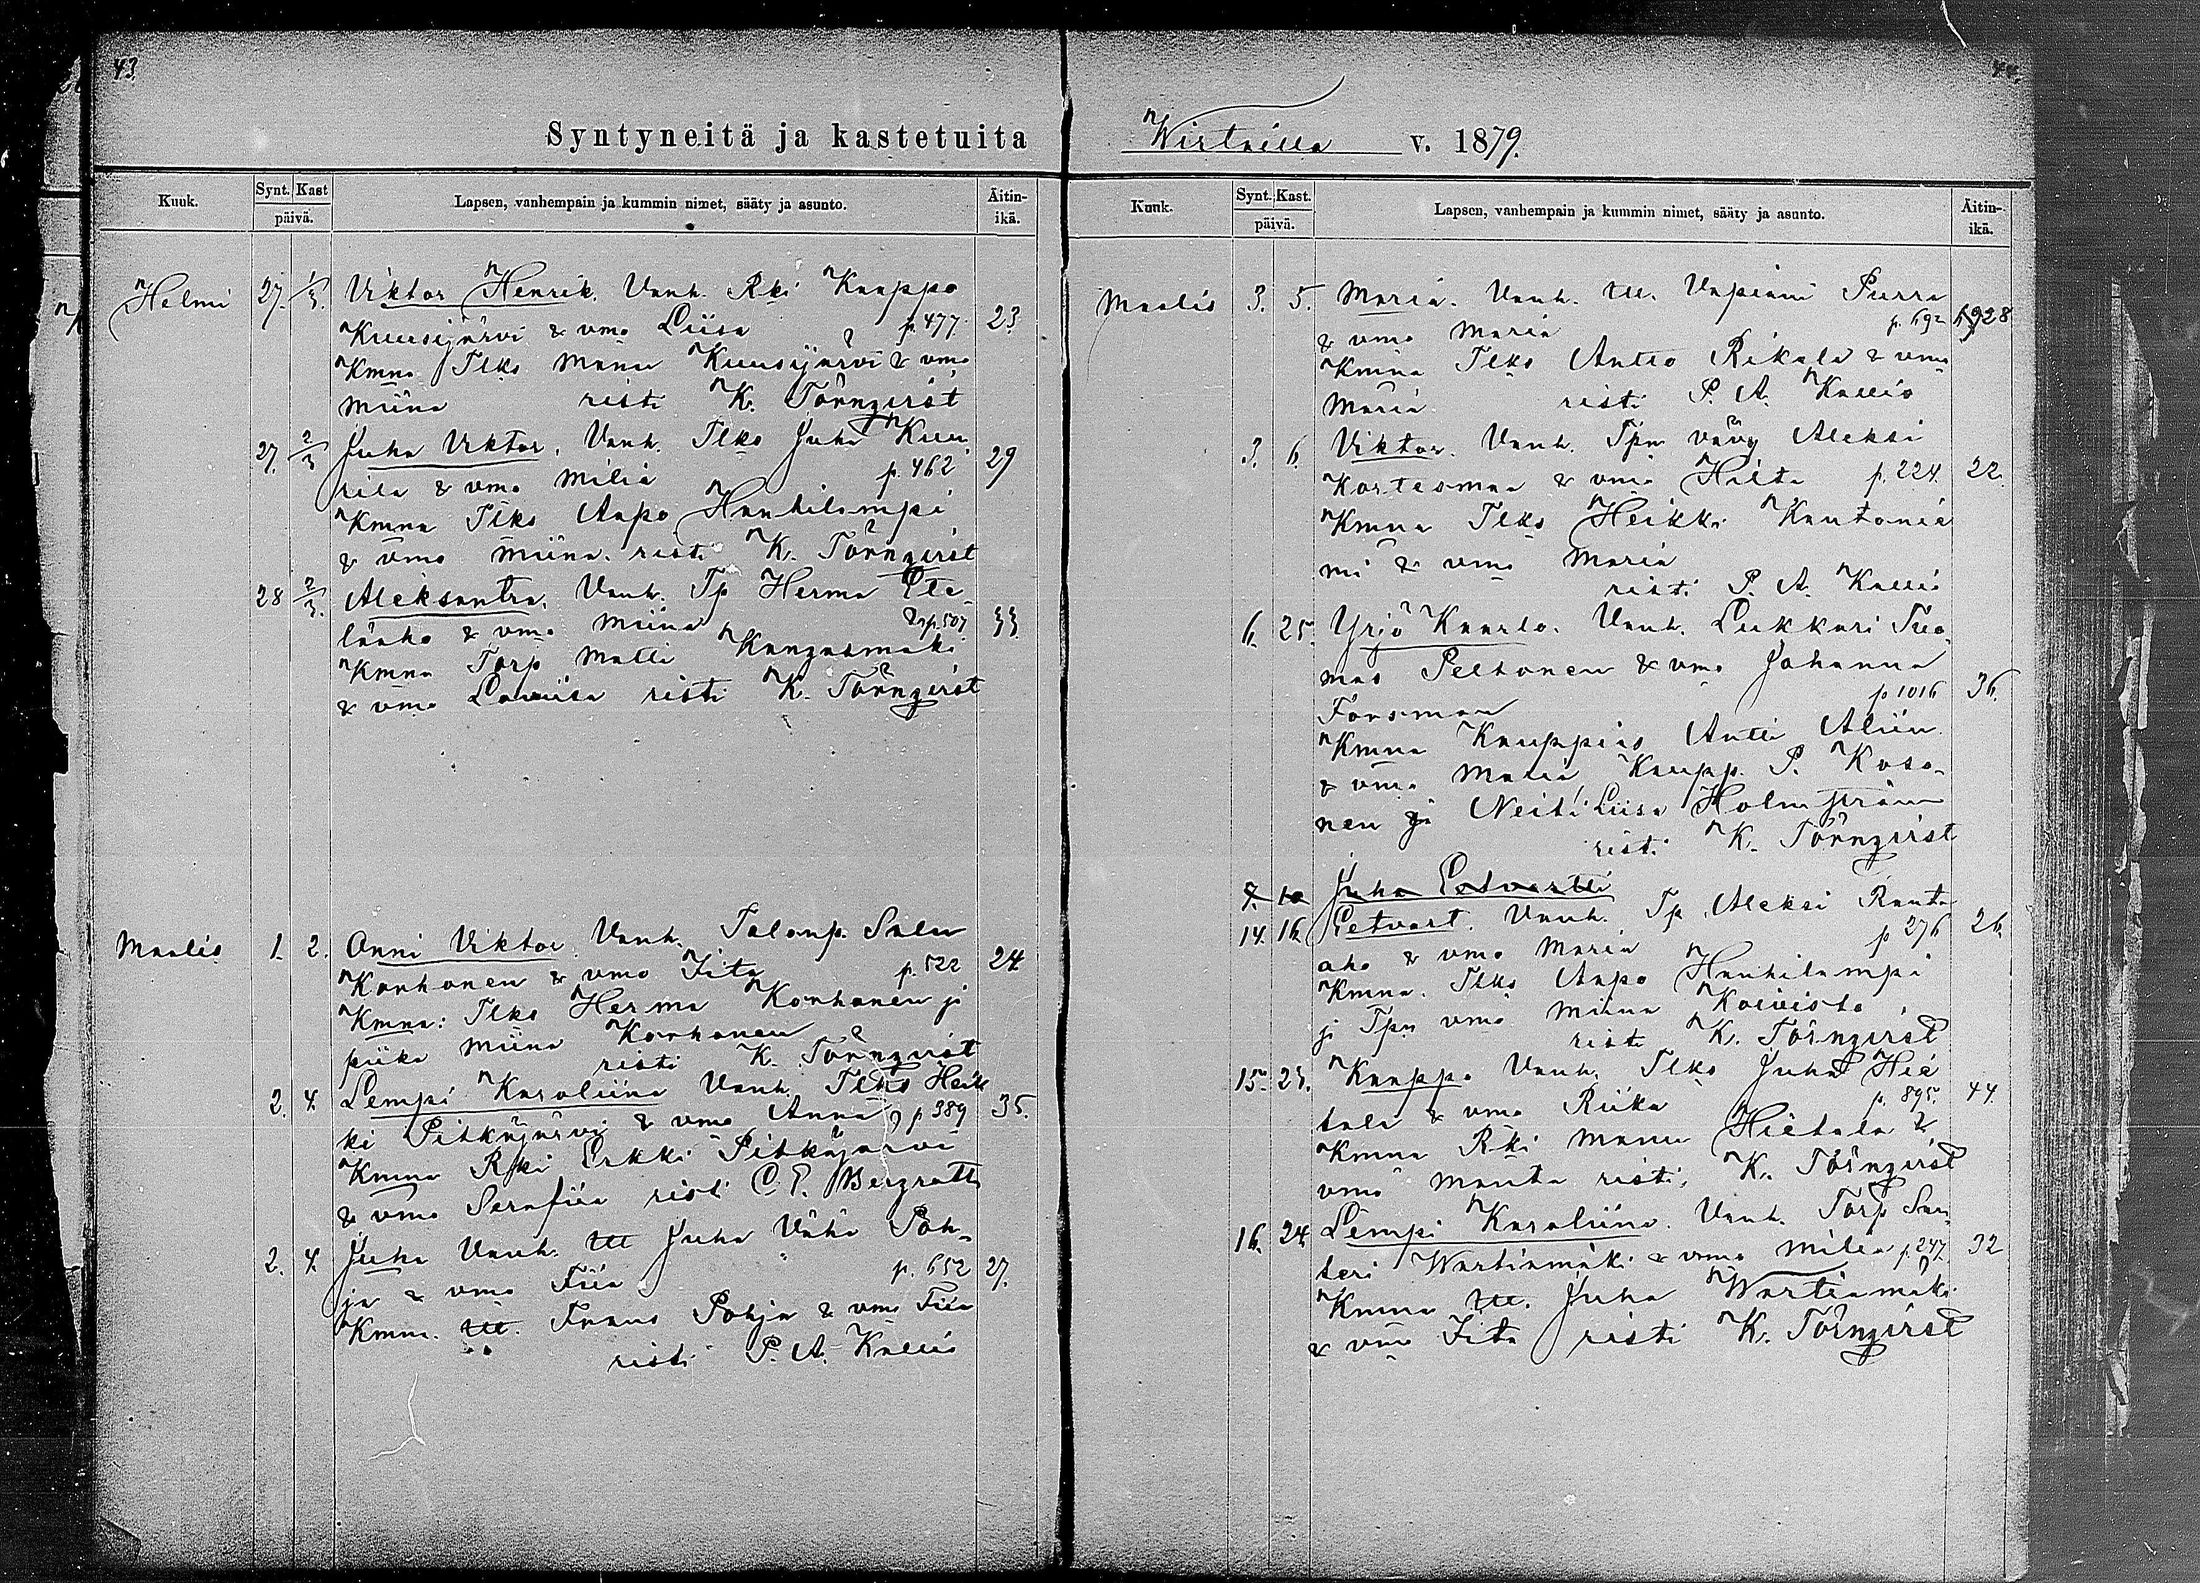 43.
44.
Syntyneitä ja kastetuita
Wirtailla v. 1879.
Kuuk. Synt. Kast Lapsen, vanhempain ja kummin nimet, sääty ja asunto. Äitin-
päivä. ikä.
Helmi 27. 1/3. Viktor Henrik. Vanh. Rki Kaappo
Kuusijärvi & vmo Liisa p. 477 23
Kmna Tlks Manu Kuusijärvi & vmo
Miina risti K. Törnqvist
27. 2/3 Juha Viktor. Vanh. Tlks Juha Kuu
rila & vmo Milia p. 462 29
Kmna Tlks Aapo Hauhilampi
& vmo Miina. risti K. Törnqvist
28 2/3. Aleksantra. Vanh. Tp Herma Ete
läaho & vmo Miina p. 507 33
Kmna Torp Matti Kangasmäki
& vmo Loviisa risti K. Törnqvist
Maalis 1. 2. Onni Viktor. Vanh. Talonp. Salu
Korhonen & vmo Fita p. 522 24
Kmna: Tlks Herma Korhonen ja
piika Miina Korhonen
risti K. Törnqvist
2. 4. Lempi Karoliina Vanh. Tlks Heik
ki Pitkäjärvi & vmo Anna p 389 35.
Kmna Rki Erkki Pitkäjärvi
& vmo Serafiia risti C. E. Bergroth
2. 4. Juha Vanh. Itl Juha Vähä Poh-
ja & vmo Fiia p. 652 27.
Kmna. Itl. Fraus Pohja & vmo Fiia
risti P. A. Kallio
Kuuk. Synt. Kast. Lapsen, vanhempain ja kummin nimet, sääty ja asunto. Äitin-
päivä. ikä.
Maalis 3. 5. Maria. Vanh. Itl. Vapiaini Purra
& vmo Maria p. 692 28
Kmna Tlks Antto Rikala & vmo
Maria risti P. A. Kallio
3. 6. Viktor. Vanh. Tpn vävy Aleksi
Kortesmaa & vmo Hilta p. 224. 22.
Kmna Tlks Heikki Kautonie
mi & vmo Maria
risti P. A. Kallio
6. 25. Yrjö Kaarlo. Vanh. Lukkari Tuo
mas Peltonen & vmo Johanna
Forsman p 1016 36.
Kmna Kauppias Antti Aliin
& vmo Maria Kaupp. P. Koso-
nen ja Neiti Liisa Holmström
risti K. Törnqvist
7. 10 Juha Eetvartti
14. 16 Eetvart. Vanh. Tp Aleksi Rauta
aho & vmo Maria p 276 26.
Kmna. Tlks Aapo Hauhilampi
ja Tpn vmo Miina Koivisto
risti K. Törnqvist
15. 23. Kaappo Vanh. Tlks Juha Hie
tala & vmo Riika p. 895. 44.
Kmna Rki Manu Hietala &
vmo Manta risti. K. Törnqvist
16. 24. Lempi Karoliina. Vanh. Torp San
teri Wartiamäki & vmo Milia p. 247 32
Kmna Itl. Juha Wartiamäki
& vmo Fita risti K. Törnqvist